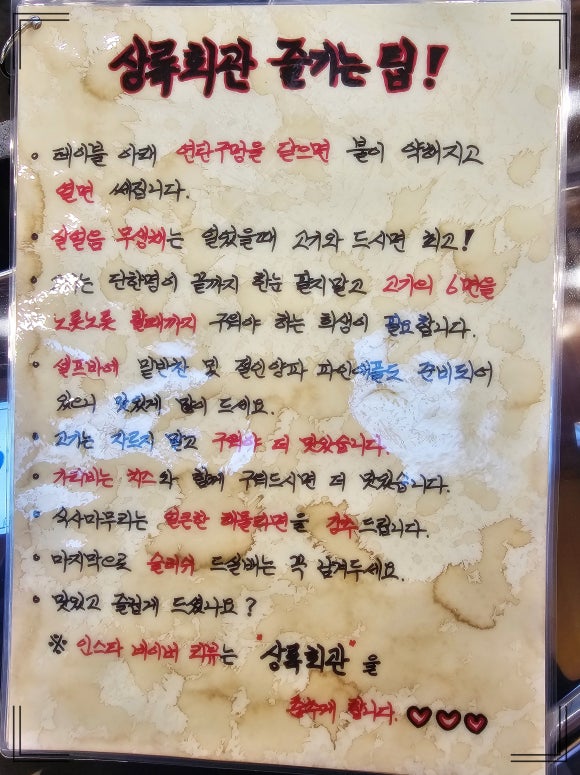 상록회관 즐기는 팁!
• 테이블 아래 연탄구멍을 닫으면 불이 약해지고
열면 세집니다.
• 살얼음 무생채는 얼었을때 고기와 드시면 최고!
• 는 단한명이 끝까지 한눈 팔지말고 고기의 6면을
노릇노릇 할때까지 구워야 하는 희생이 필요합니다.
• 셀프바에 밑반찬 및 절인양파 파인애플도 준비되어
있으니 맛있게 많이 드세요.
• 고기는 자르지 말고 구워야 더 맛있습니다.
• 가리비는 치즈와 함께 구워드시면 더 맛있습니다.
• 식사마무리는 얼큰한 해물라면을 강추드립니다.
• 마지막으로 슬러쉬 드실배는 꼭 남겨두세요.
• 맛있고 즐겁게 드셨나요?
※ 인스타 네이버 리뷰는 "상록회관"을
춤추게 합니다. ♡♡♡